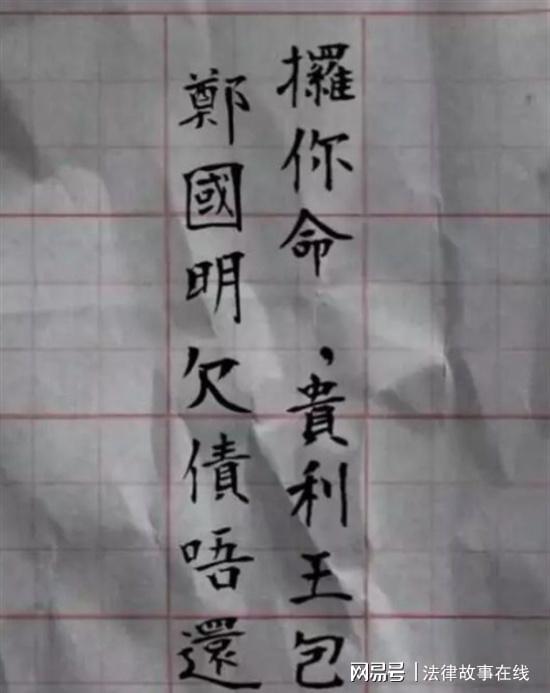 鄭國明欠債唔還
攞你命，貴利王包
网易号 | 法律故事在线